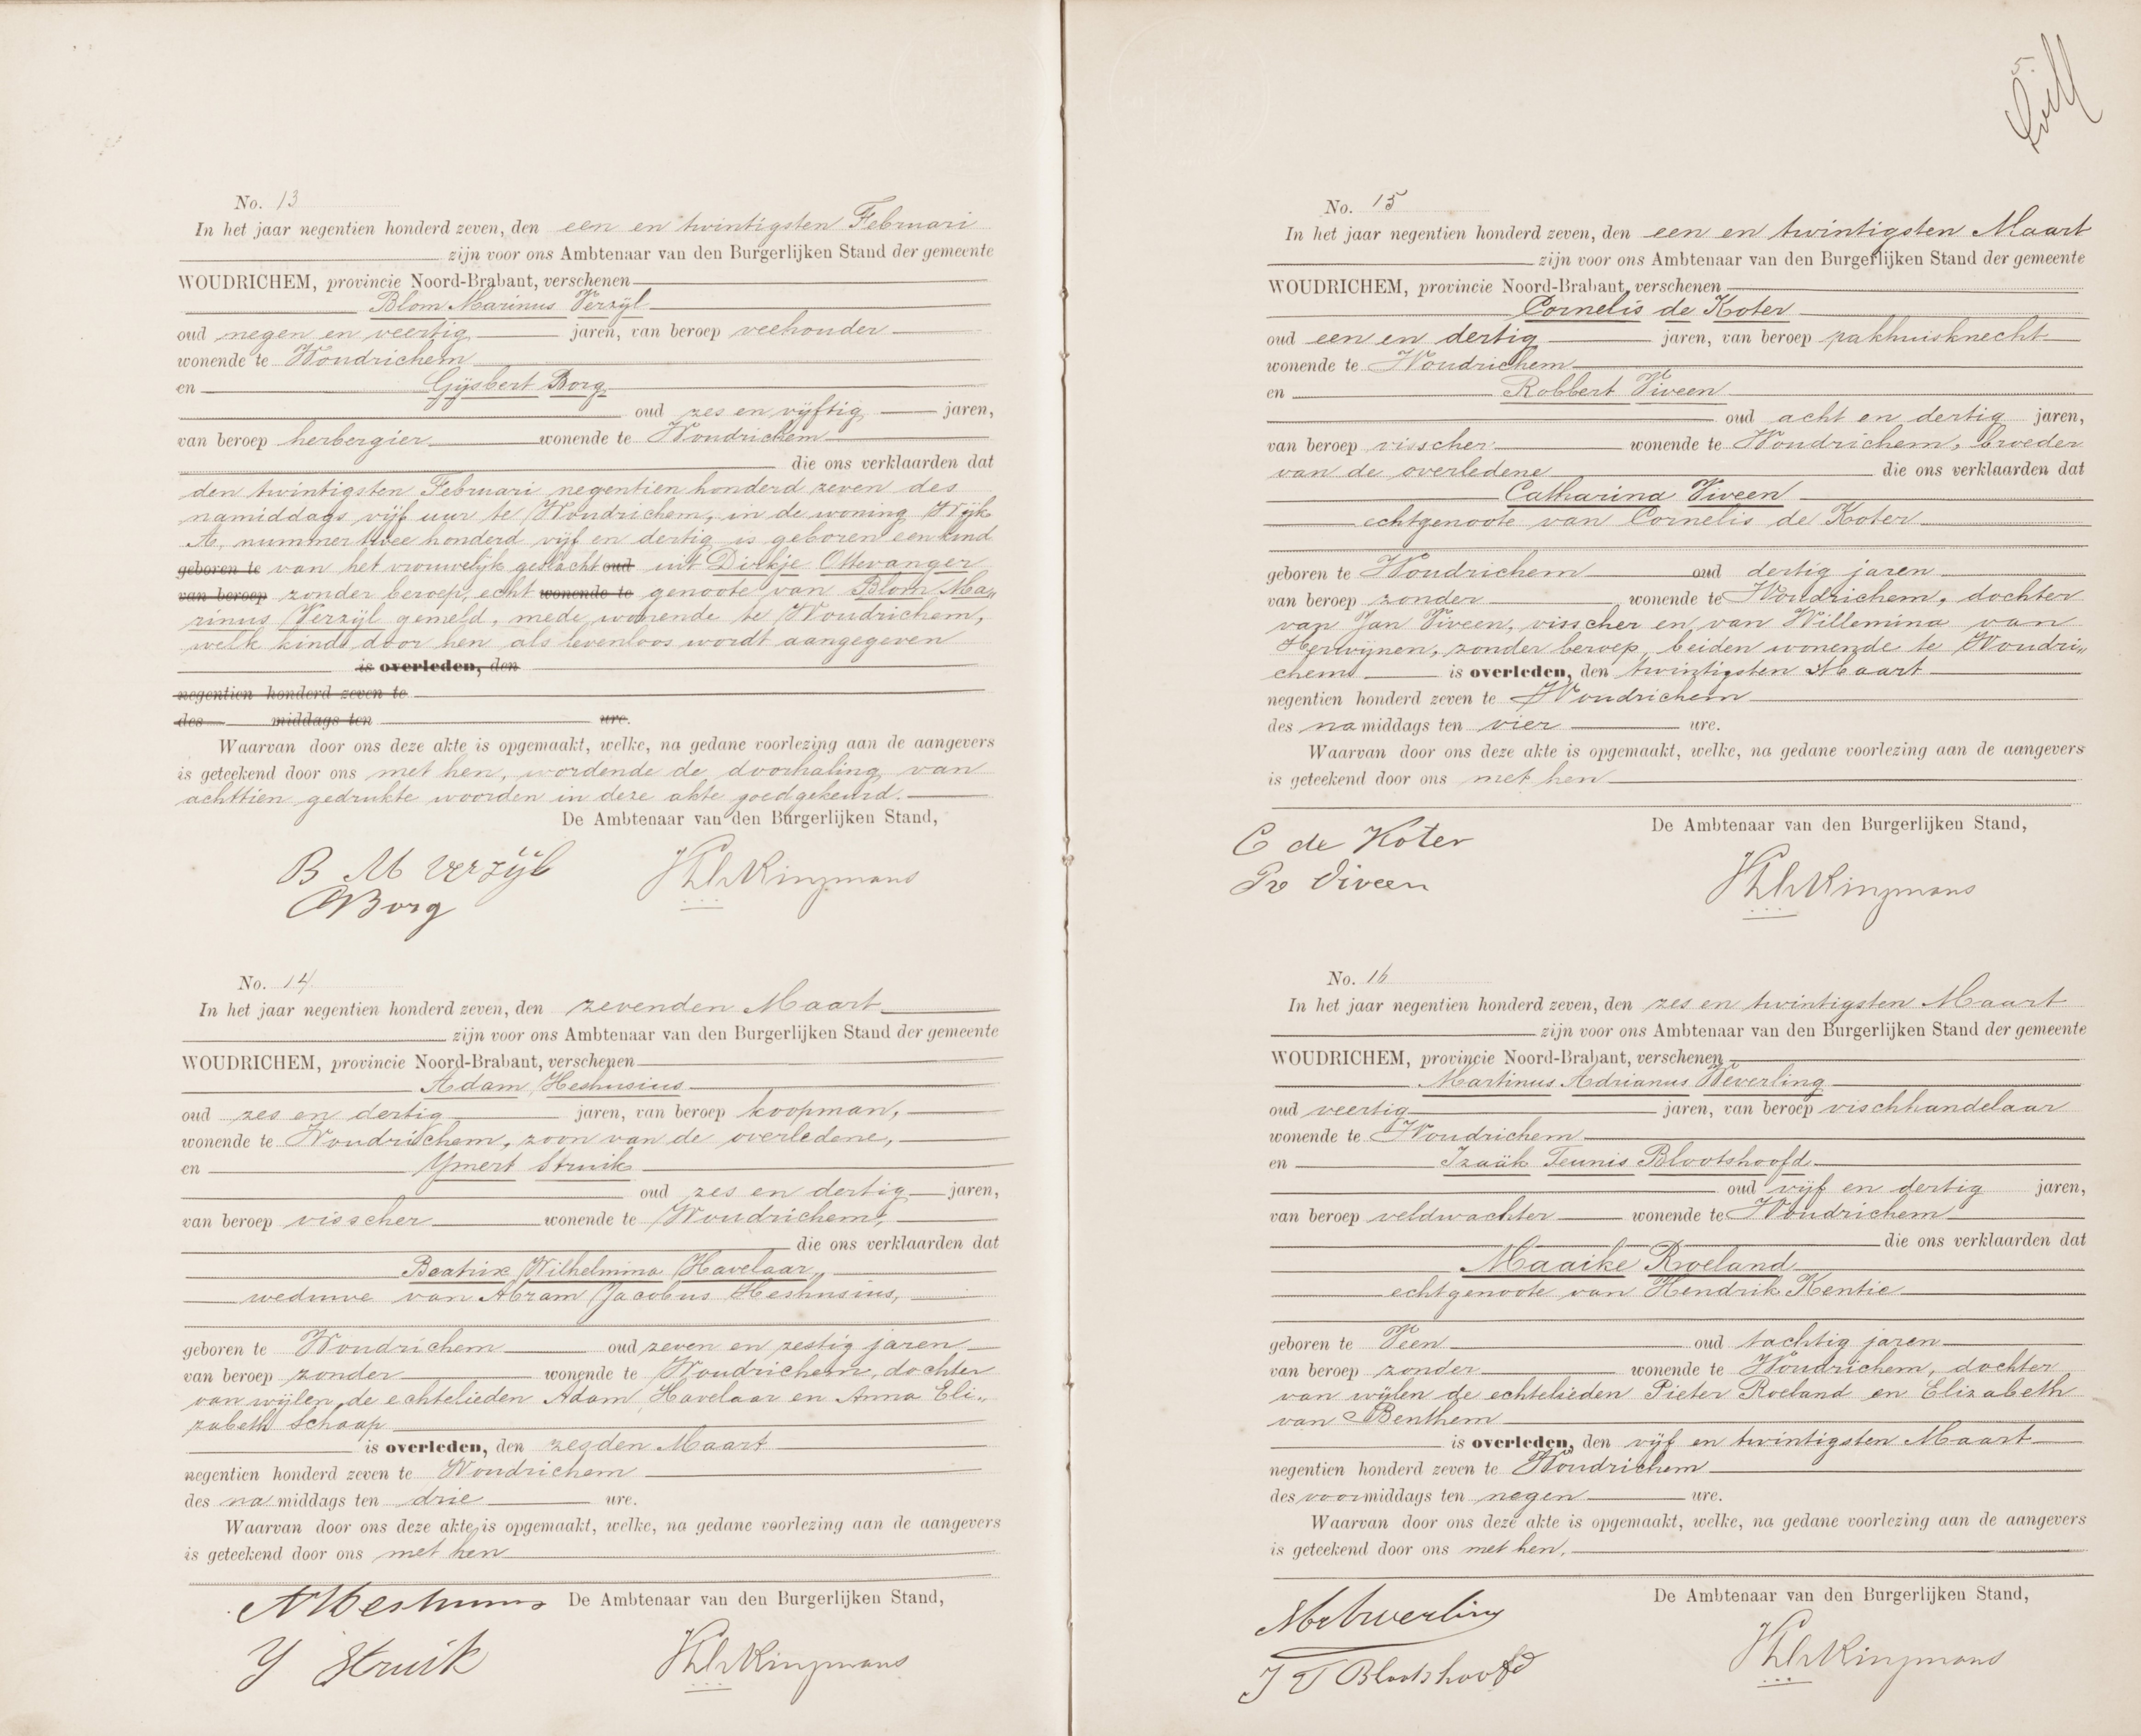 No. 13
In het jaar negentien honderd zeven, den een en twintigsten Februari
zijn voor ons Ambtenaar van den Burgerlijken Stand der gemeente
WOUDRICHEM, provincie Noord-Brabant, verschenen
Blom Marinus Verzijl
oud negen en veertig jaren, van beroep veehouder
wonende te Woudrichem
en Gijsbert Borg
oud zes en vijftig jaren,
van beroep herbergier wonende te Woudrichem
die ons verklaarden dat
den twintigsten Februari negentien honderd zeven des
namiddags vijf uur te Woudrichem, in de woning Wijk
A, nummer twee honderd vijf en dertig is geboren een kind
geboren te van het vrouwelijk geslacht oud uit Dirkje Ottevanger
van beroep zonder beroep, echt wonende te genoote van Blom Ma„
rinus Verzijl gemeld, mede wonende te Woudrichem,
welk kind door hen als levenloos wordt aangegeven
is overleden, den
negentien honderd zeven te
des middags ten ure.
Waarvan door ons deze akte is opgemaakt, welke, na gedane voorlezing aan de aangevers
is geteekend door ons met hen, wordende de doorhaling van
achttien gedrukte woorden in deze akte goedgekeurd.
De Ambtenaar van den Burgerlijken Stand,
B M Verzijl
GBorg
No. 14
In het jaar negentien honderd zeven, den zevenden Maart
zijn voor ons Ambtenaar van den Burgerlijken Stand der gemeente
WOUDRICHEM, provincie Noord-Brabant, verschenen
Adam Heshusius
oud zes en dertig jaren, van beroep koopman,
wonende te Woudrichem, zoon van de overledene,
en Ymert Struik
oud zes en dertig jaren,
van beroep visscher wonende te Woudrichem,
die ons verklaarden dat
Beatrix Wilhelmina Havelaar,
weduwe van Abram Jacobus Heshusius,
geboren te Woudrichem oud zeven en zestig jaren
van beroep zonder wonende te Woudrichem, dochter
van wijlen de echtelieden Adam Havelaar en Anna Eli„
zabeth Schaap
is overleden, den zesden Maart
negentien honderd zeven te Woudrichem
des na middags ten drie ure.
Waarvan door ons deze akte is opgemaakt, welke, na gedane voorlezing aan de aangevers
is geteekend door ons met hen
De Ambtenaar van den Burgerlijken Stand,
Y Struik
5.
No. 15
In het jaar negentien honderd zeven, den een en twintigsten Maart
zijn voor ons Ambtenaar van den Burgerlijken Stand der gemeente
WOUDRICHEM, provincie Noord-Brabant, verschenen
Cornelis de Koter
oud een en dertig jaren, van beroep pakhuisknecht
wonende te Woudrichem
en Robbert Viveen
oud acht en dertig jaren,
van beroep visscher wonende te Woudrichem, broeder
van de overledene die ons verklaarden dat
Catharina Viveen
echtgenoote van Cornelis de Koter
geboren te Woudrichem oud dertig jaren
van beroep zonder wonende te Woudrichem, dochter
van Jan Viveen, visscher en van Willemina van
Herwijnen, zonder beroep, beiden wonende te Woudri„
chem is overleden, den twintigsten Maart
negentien honderd zeven te Woudrichem
des na middags ten vier ure.
Waarvan door ons deze akte is opgemaakt, welke, na gedane voorlezing aan de aangevers
is geteekend door ons met hen
De Ambtenaar van den Burgerlijken Stand,
C de Koter
Viveen
No. 16
In het jaar negentien honderd zeven, den zes en twintigsten Maart
zijn voor ons Ambtenaar van den Burgerlijken Stand der gemeente
WOUDRICHEM, provincie Noord-Brabant, verschenen
Martinus Adrianus Beverling
oud veertig jaren, van beroep vischhandelaar
wonende te Woudrichem
en Izaäk Teunis Blootshoofd
oud vijf en dertig jaren,
van beroep veldwachter wonende te Woudrichem
die ons verklaarden dat
Maaike Roeland
echtgenoote van Hendrik Kentie
geboren te Veen oud tachtig jaren
van beroep zonder wonende te Woudrichem, dochter
van wijlen de echtelieden Pieter Roeland en Elizabeth
van Benthem
is overleden, den vijf en twintigsten Maart
negentien honderd zeven te Woudrichem
des voormiddags ten negen ure.
Waarvan door ons deze akte is opgemaakt, welke, na gedane voorlezing aan de aangevers
is geteekend door ons met hen.
De Ambtenaar van den Burgerlijken Stand,
I T Blootshoofd